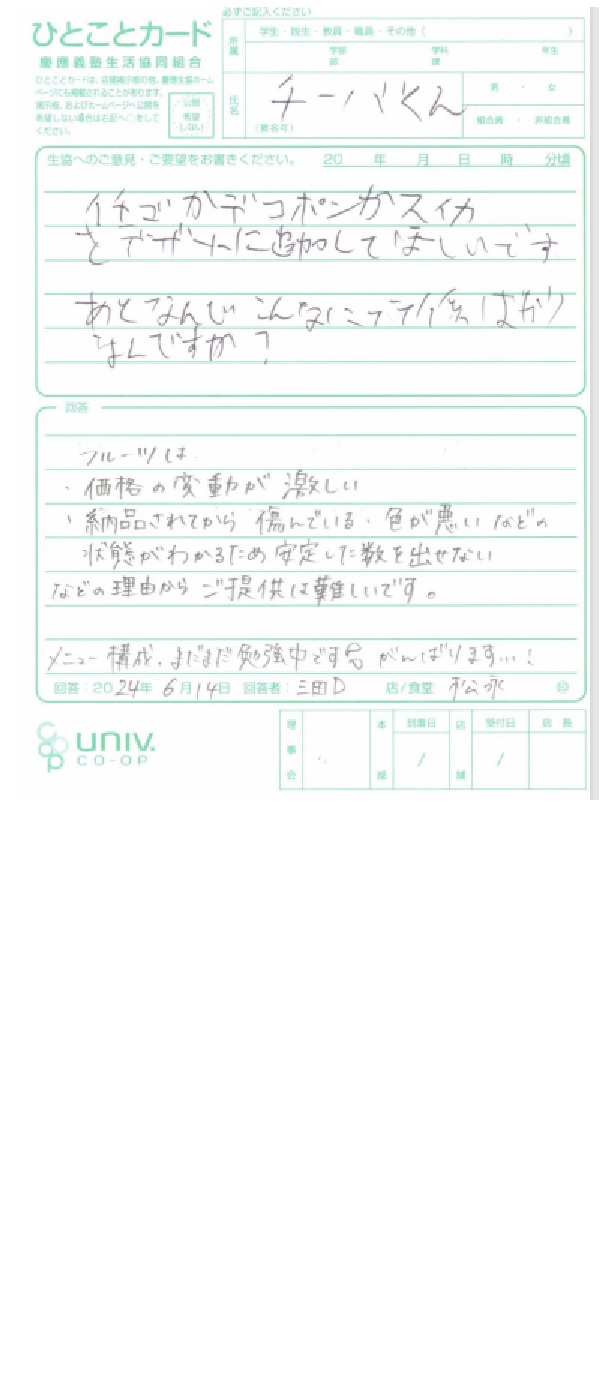 必ずご記入ください
ひとことカード
慶應義塾生活協同組合
ひとことカードは、店頭掲示板の他、慶應生協ホーム
ページにも掲載されることがあります。
掲示板、およびホームページへ公開を
希望しない場合は右記へ○をして
ください。
公開
希望
しない
所属
学生・院生・教員・職員・その他（　　　）
学部　学科　年生
部　課
氏名
チーバくん
（匿名可）
男・女
組合員・非組合員
生協へのご意見・ご要望をお書きください。　20　年　月　日　時　分頃
イチゴかデコポンかスイカ
をデザートに追加してほしいです
あとなんで こんなに 系ばかり
なんですか?
回答
フルーツは
・価格の変動が激しい
・納品されてから傷んでいる・色が悪いなどの
状態がわかるため安定した数を出せない
などの理由からご提供は難しいです。
メニュー構成、まだまだ勉強中です がんばります…!
回答：2024年 6月14日　回答者：三田D　店/食堂　松永　印
UNIV.
CO-OP
理事会　本部　到着日　/　店舗　受付日　/　店長